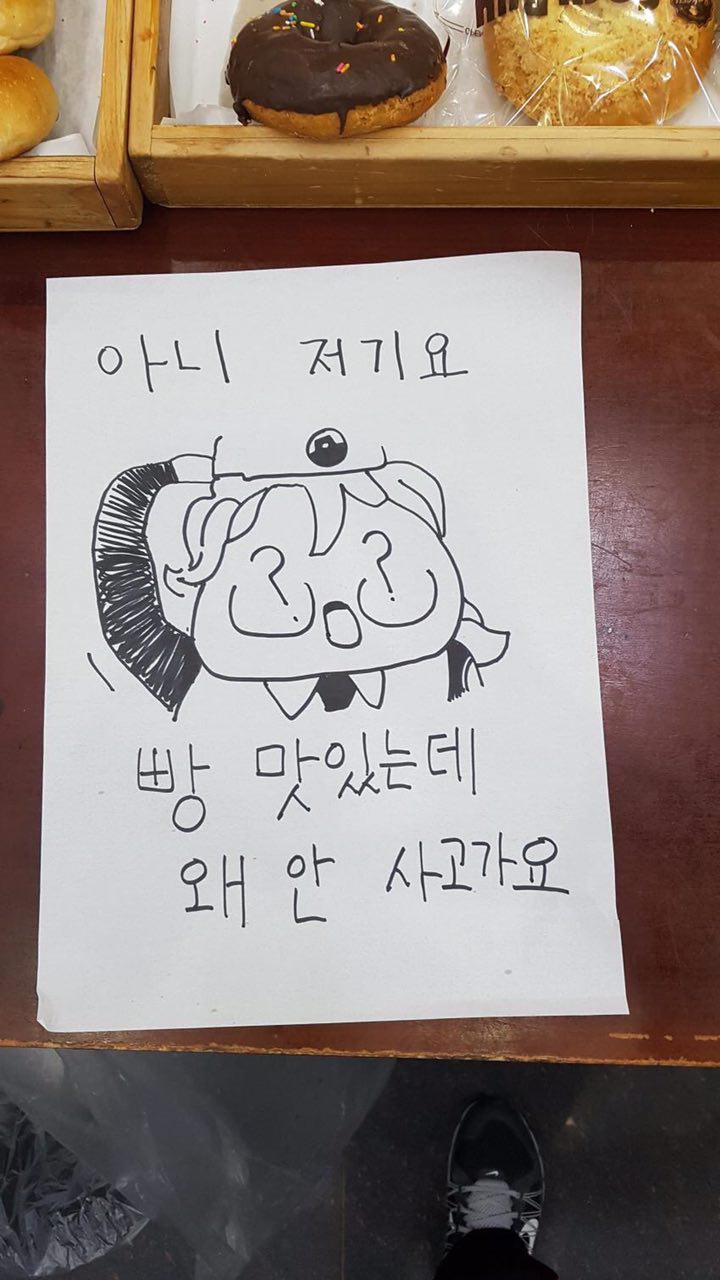 아니 저기요
빵 맛있는데
왜 안 사고가요